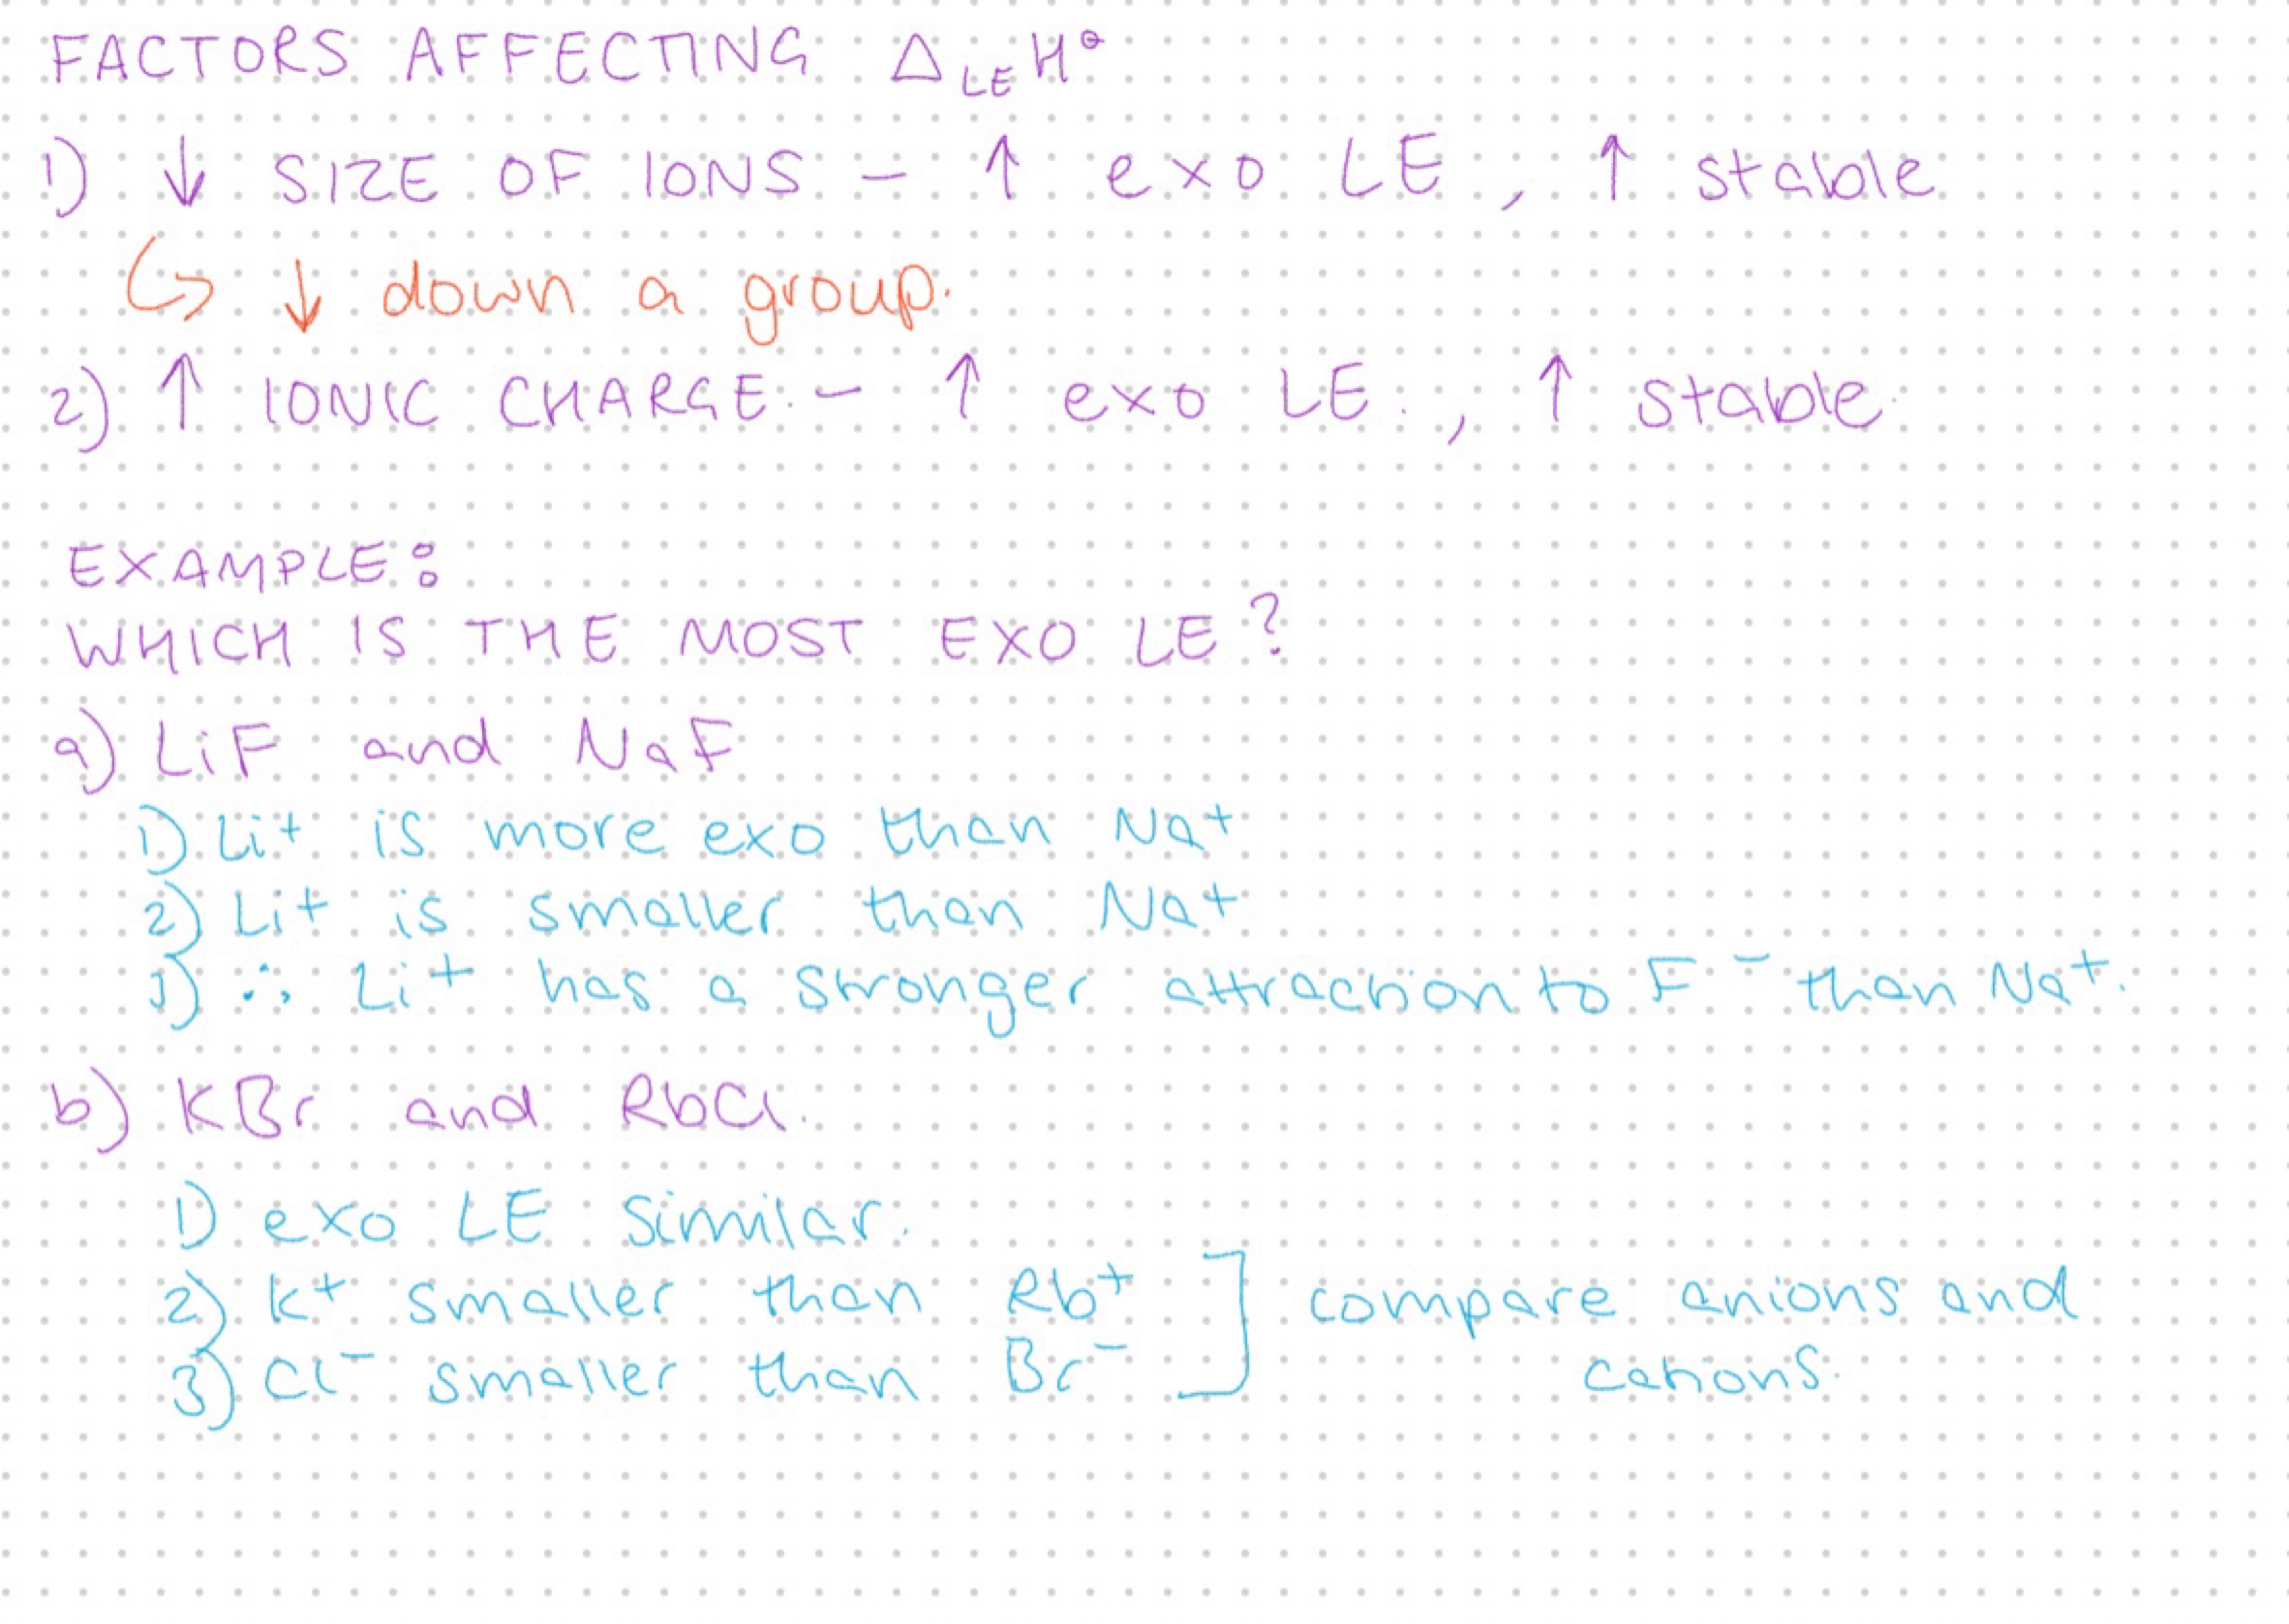 FACTORS AFFECTING Δ LE H⦵
1) ↓ SIZE OF IONS - ↑ exo LE, ↑ stable
↳ ↓ down a group.
2) ↑ IONIC CHARGE - ↑ exo LE, ↑ stable
EXAMPLE:
WHICH IS THE MOST EXO LE?
a) LiF and NaF
1) Li+ is more exo than Na+
2) Li+ is smaller than Na+
3) ∴ Li+ has a stronger attraction to F- than Na+.
b) KBr and RbCl.
1) exo LE similar.
2) K+ smaller than Rb+ ] compare anions and
3) Cl- smaller than Br- cations.